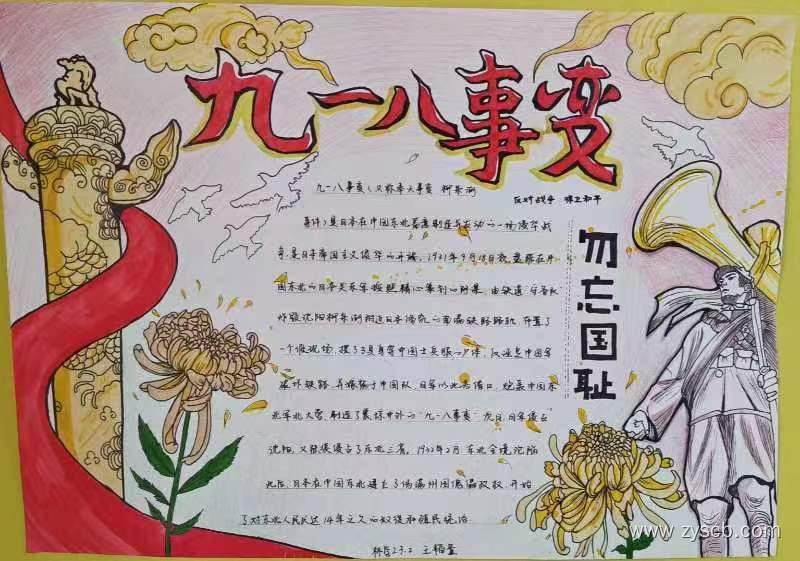 九一八事变
九一八事变(又称奉天事变 柳条湖
反对战争 保卫和平
事件)是日本在中国东北蓄意制造并发动的一场侵华战
争,是日本帝国主义侵华的开端。1931年9月18日夜,盘踞在中
国东北的日本关东军按照精心策划的阴谋,由铁道"守备队"
炸毁沈阳柳条湖附近日本修筑的南满铁路路轨,布置了
一个假现场,摆了3具身穿中国士兵服的尸体,反诬是中国军
破坏铁路,
日军以此为借口,炮轰中国东
北军北大营,制造了震惊中外的"九一八事变"。次日,日军侵占
沈阳,又陆续侵占了东北三省。1932年2月,东北全境沦陷
此后,日本在中国东北建立了伪满州国傀儡政权,开始
了对东北人民长达14年之久的奴役和殖民统治
勿忘国耻
www.zyscb.com